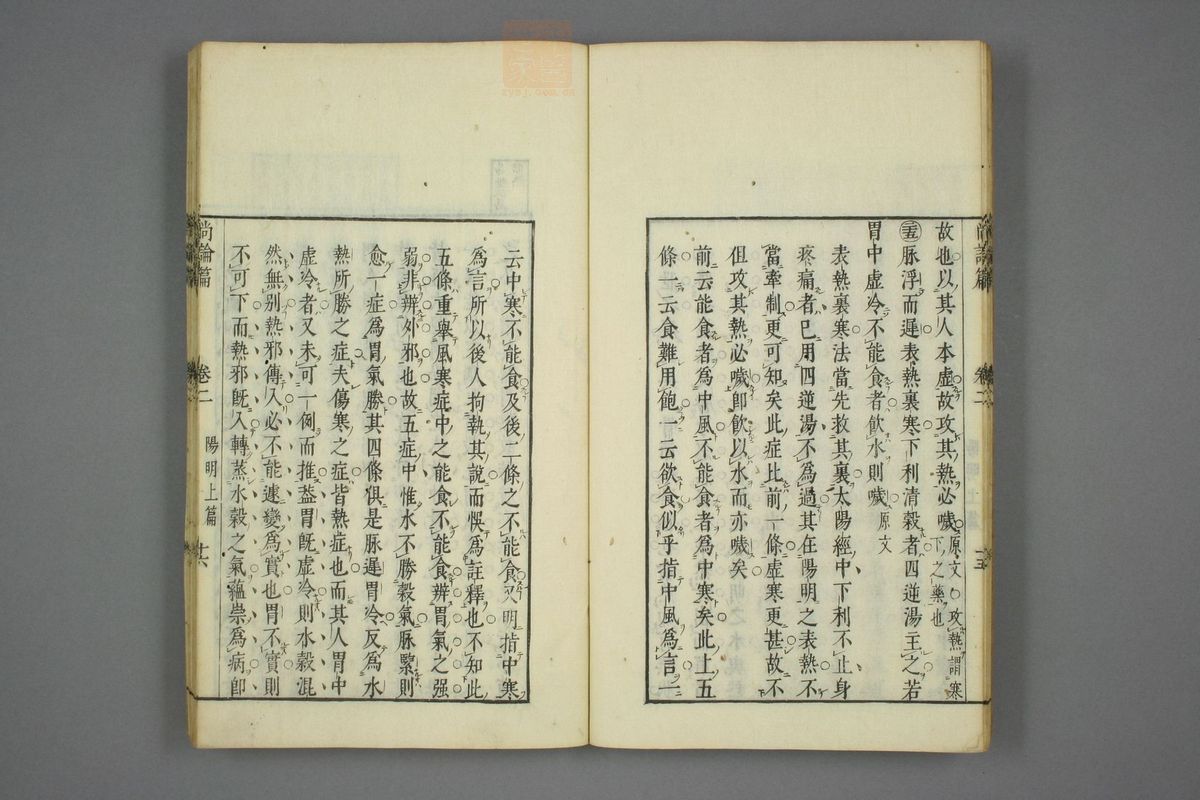 尚論篇
卷二
故也以其人本虛故攻其熱必噦原文攻熱謂寒下之藥也
㊄脉浮而遲表熱裏寒下利清穀者四逆湯主之若
胃中虛冷不能食者飲水則噦原文
表熱裏寒法當先救其裏太陽經中下利不止身
疼痛者已用四逆湯不爲過其在陽明之表熱不
當牽制更可知矣此症比前一條虛寒更甚故不
但攻其熱必噦即飲以水而亦噦矣
前云能食者爲中風不能食者爲中寒矣此上五
條一云食難用飽一云欲食似乎指中風爲言一
云中寒不能食及後二條之不能食又明指中寒
爲言所以後人拘執其說而悞爲註釋也不知此
五條重舉風寒症中之能食不能食辨胃氣之强
弱非辨外邪也故五症中惟水不勝穀氣脉緊則
愈一症爲胃氣勝其四條俱是脉遲胃冷反爲水
熱所勝之症夫傷寒之症皆熱症也而其人胃中
虛冷者又未可一例而推葢胃旣虛冷則水穀混
然無别熱邪傳入必不能遽變爲實也胃不實則
不可下而熱邪旣入轉蒸水穀之氣蘊祟爲病卽
尚論篇
卷二
陽明上篇